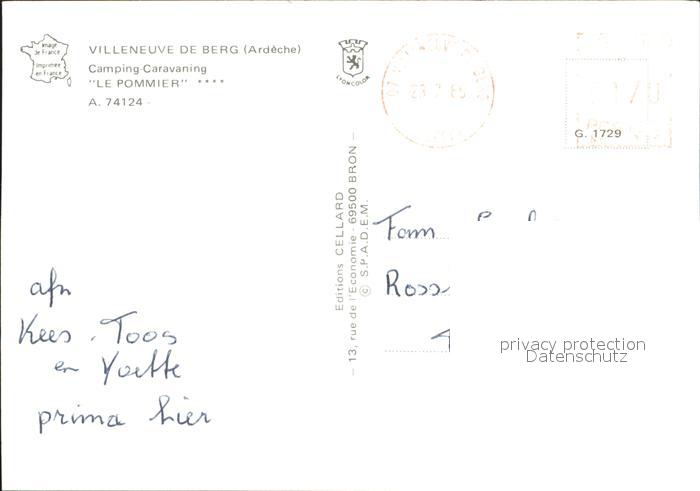 Image
de France
Imprimée
en France
VILLENEUVE DE BERG (Ardèche)
Camping-Caravaning
"LE POMMIER" ****
A. 74124
LYONCOLOR
23.7.85
G. 1729
Editions CELLARD
– 13, rue de l'Economie - 69500 BRON –
© S.P.A.D.E.M.
Fam
Ross
afz
Kees, Toos
en Yvette
prima hier
privacy protection
Datenschutz